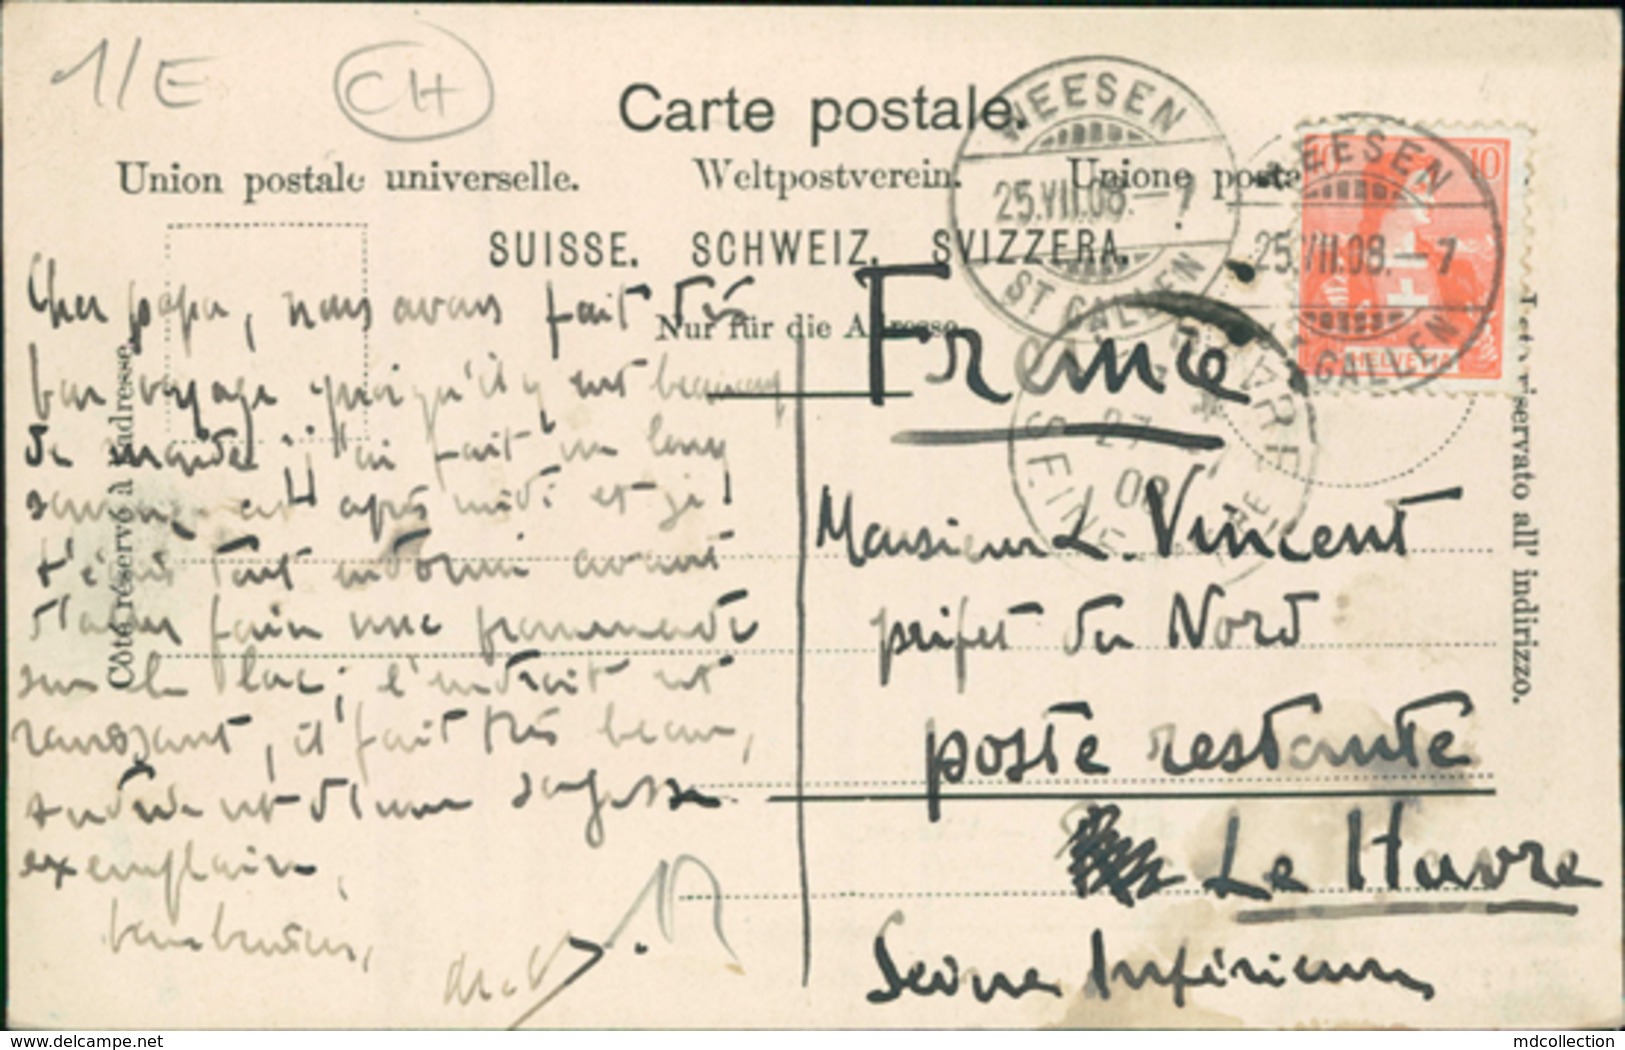 1/E
CH
Carte postale.
Union postale universelle. Weltpostverein. Unione posta
SUISSE. SCHWEIZ. SVIZZERA.
Nur für die Adresse.
Côté réservé à l'adresse.
riservato all' indirizzo.
WEESEN
25.VII.08.-7
ST GALLEN
WEESEN
25.VII.08.-7
GALLEN
10 10
HELVETIA
HAVRE
27
08
SEINE
Cher papa, nous avons fait très
bon voyage quoiqu'il y eut beaucoup
de monde; j'ai fait un long
cet après midi et je
tout endormi avant
d'aller faire une promenade
sur le lac; l'endroit est
ravissant, il fait très beau,
Andrée est d'une sagesse
exemplaire,
bons baisers,
France
Monsieur L. Vincent
préfet du Nord
poste restante
Le Havre
Seine Inférieure
www.delcampe.net
mdcollection